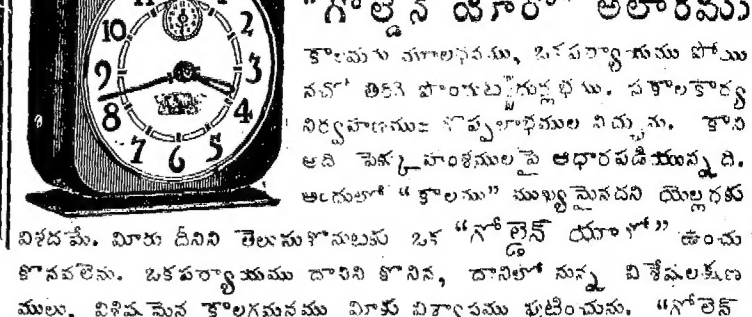 "గోల్డెన్ యారో" అలారము
కాలమే మూలధనము, ఒకపర్యాయము పోయి
నచో తిరిగి పొందుట దుర్లభము. సకాలకార్య
నిర్వహణము గొప్పలాభముల నిచ్చును. కాని
అది పెక్కు అంశములపై ఆధారపడియున్నది.
అందులో "కాలము" ముఖ్యమైనదని యెల్లరకు
విశదమే. మీరు దీనిని తెలుసుకొనుటకు ఒక "గోల్డెన్ యారో" ఉంచు
కొనవలెను. ఒకపర్యాయము దానిని కొనిన, దానిలో నున్న విశేషలక్షణ
ములు, విశిష్టమైన కాలగమనము మీకు విశ్వాసము పుట్టించును. "గోల్డెన్
10 2
9 3
8 4
7 6 5